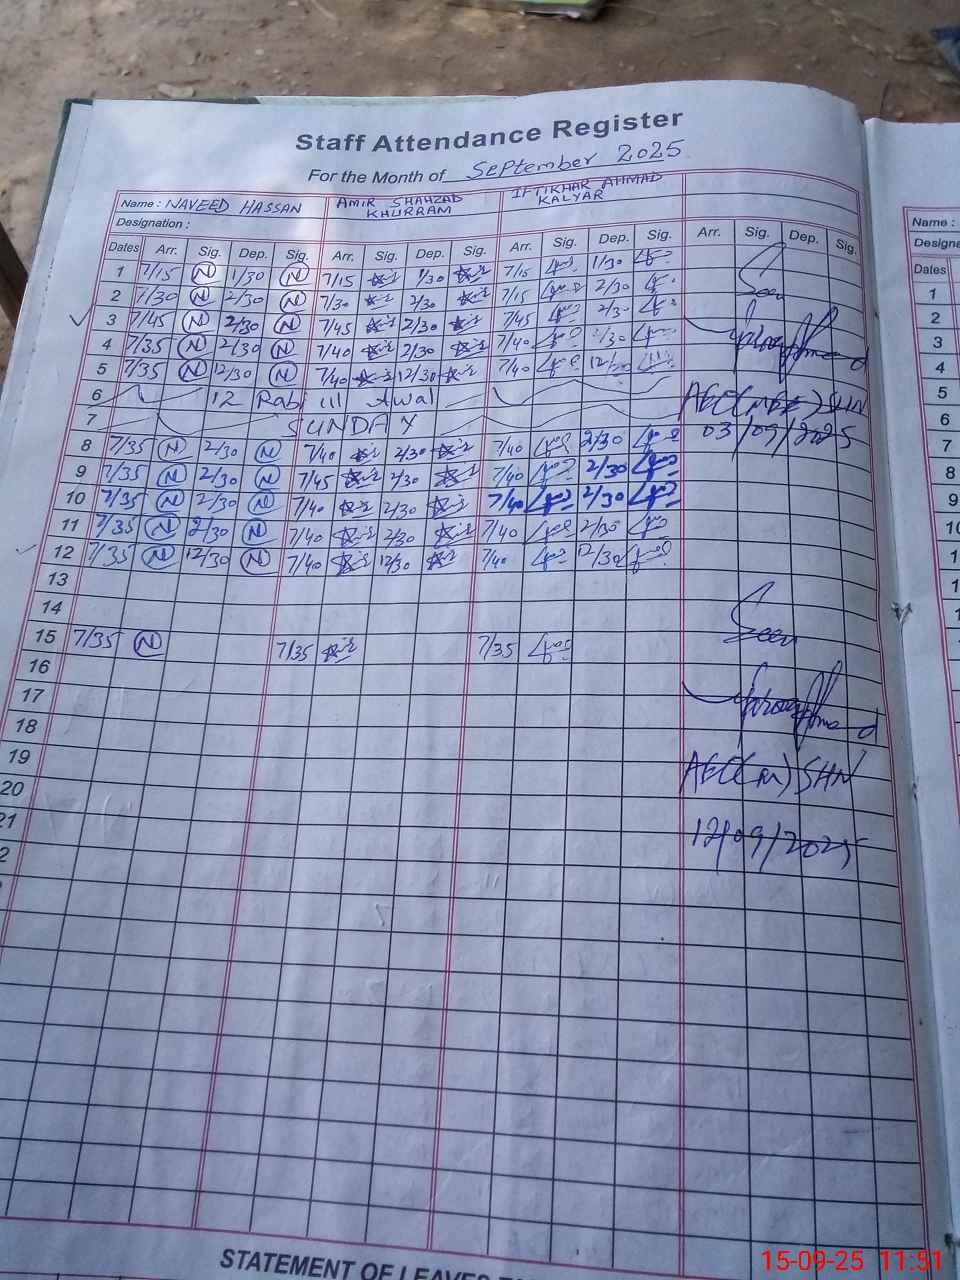 Staff Attendance Register
For the Month of September 2025
Name : NAVEED HASSAN AMIR SHAHZAD KHURRAM IFTIKHAR AHMAD KALYAR Name :
Designation : Designa
Dates Arr. Sig. Dep. Sig. Arr. Sig. Dep. Sig. Arr. Sig. Dep. Sig. Arr. Sig. Dep. Sig. Dates
1 7/15 N 1/30 N 7/15 1/30 7/15 1/30 1
2 7/30 N 2/30 N 7/30 2/30 7/15 2/30 Seen 2
3 7/45 N 2/30 N 7/45 2/30 7/45 2/30 3
4 7/35 N 2/30 N 7/40 2/30 7/40 2/30 4
5 7/35 N 12/30 N 7/40 12/30 7/40 12/30 5
6 12 Rabi ul Awal SHN 6
7 SUNDAY 03/09/2025 7
8 7/35 N 2/30 N 7/40 2/30 7/40 2/30 8
9 7/35 N 2/30 N 7/45 2/30 7/40 2/30 9
10 7/35 N 2/30 N 7/40 2/30 7/40 2/30 10
11 7/35 N 2/30 N 7/40 2/30 7/40 2/30
12 7/35 N 12/30 N 7/40 12/30 7/40 12/30
13
14
15 7/35 N 7/35 7/35 Seen
16
17
18
19 AEO(M) SHN
20
21
12/09/2025
STATEMENT OF LEAVES
15-09-25 11:51